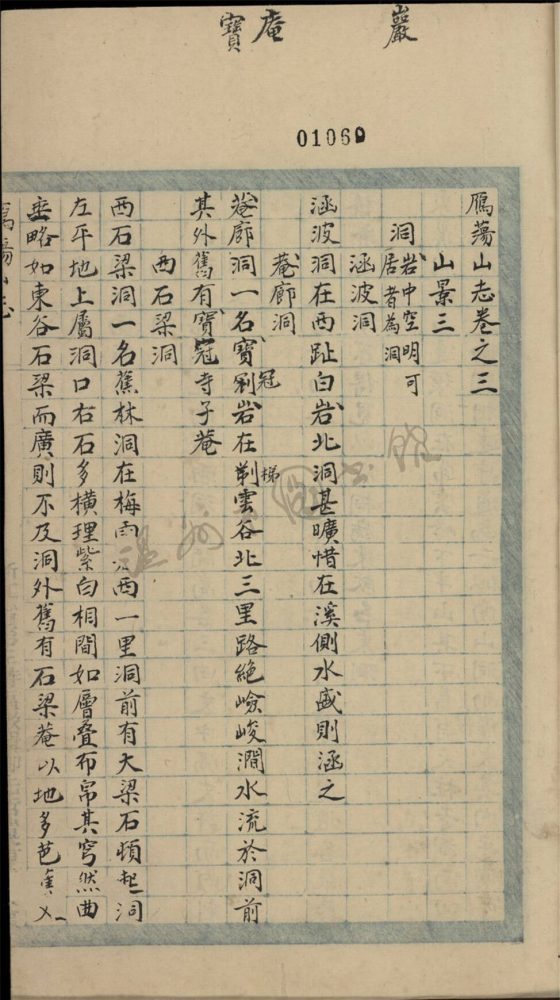 巖
庵
寶
01060
鴈蕩山志卷之三
山景三
洞岩中空明可居者為洞
涵波洞
涵波洞在西趾白岩北洞甚曠惜在溪側水盛則涵之
菴廊洞
菴廊洞一名寶冠岩在梯雲谷北三里路絶嶮峻澗水流於洞前
其外舊有寶冠寺子菴
西石梁洞
西石梁洞一名蕉林洞在梅雨 西一里洞前有大梁石傾 洞
左平地上屬洞口右石多横理紫白相間如層叠布帛其穹然曲
垂略如東谷石梁而廣則不及洞外舊有石梁菴以地多芭蕉又
鴈蕩山志
圖書館